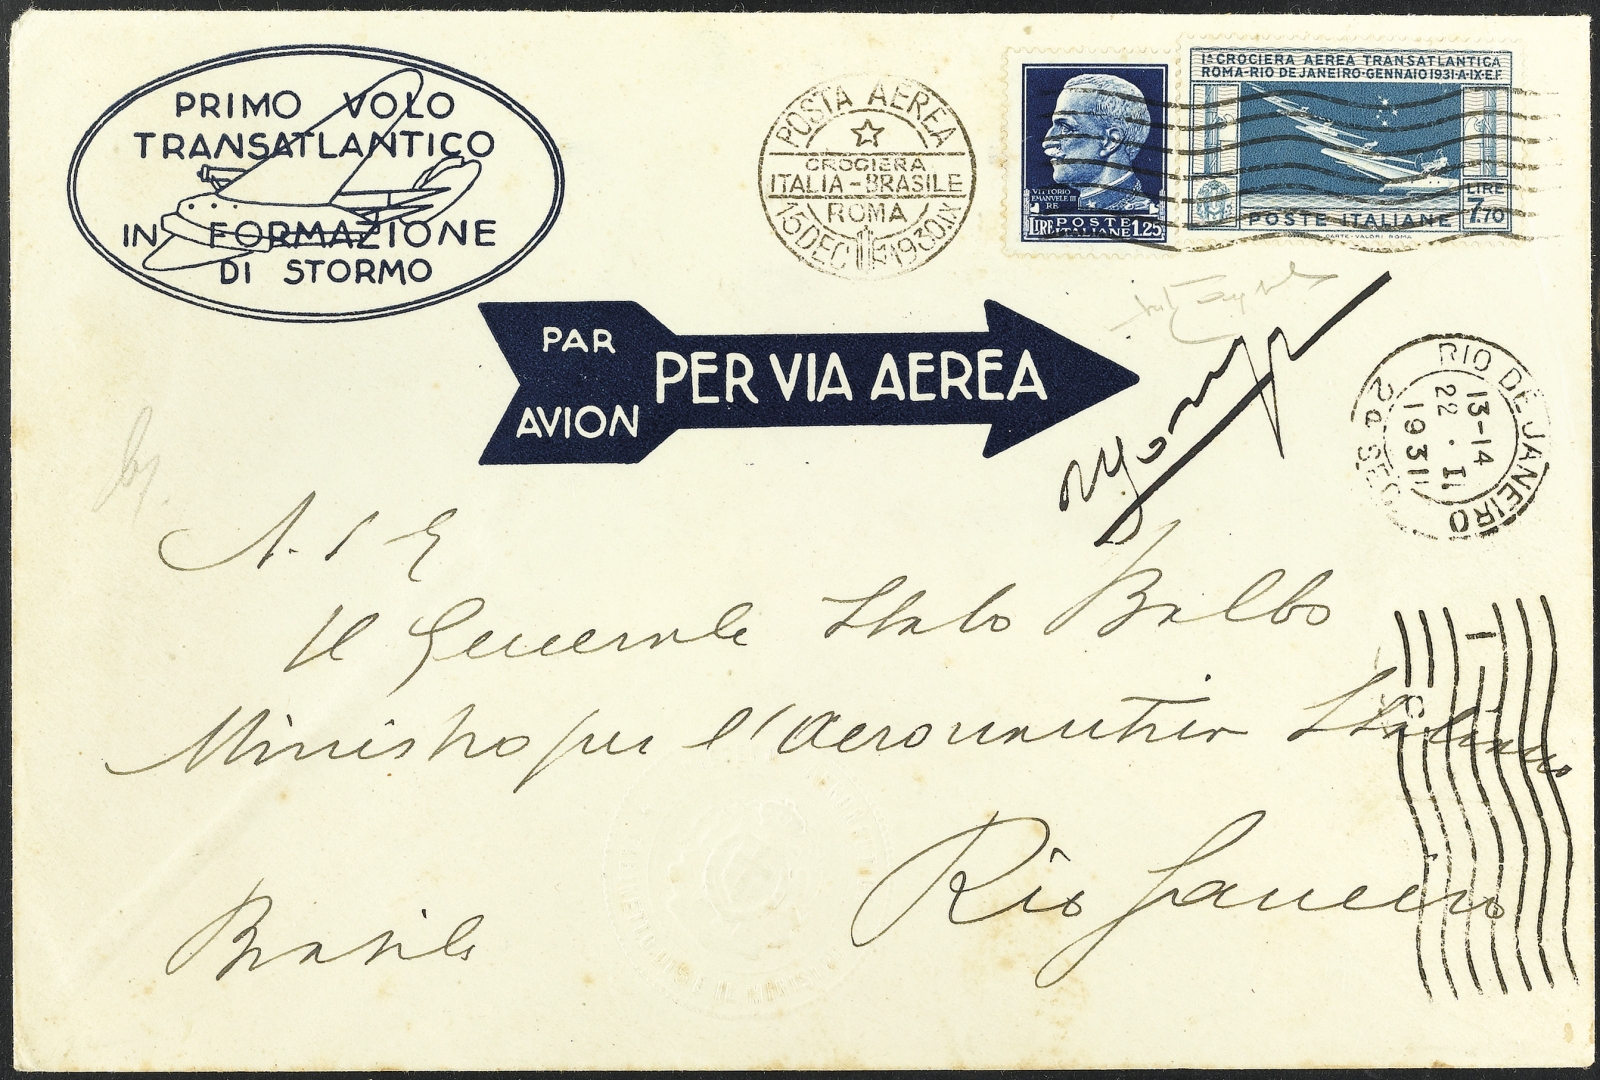 PRIMO VOLO
TRANSATLANTICO
IN FORMAZIONE
DI STORMO
POSTA AEREA
CROCIERA
ITALIA-BRASILE
ROMA
15 DEC 1930.IX
VITTORIO
EMANUELE III
RE
POSTE
LIRE ITALIANE 1.25
1ª CROCIERA AEREA TRANSATLANTICA
ROMA-RIO DE JANEIRO-GENNAIO 1931-A.IX.E.F.
LIRE
7,70
POSTE ITALIANE
CARTE-VALORI ROMA
PAR
AVION
PER VIA AEREA
RIO DE JANEIRO
13-14
22. II.
1931
2a SEC
A. S. E.
Il Generale Italo Balbo
Ministro per l'aeronautica Italiana
Rio Janeiro
Brasile